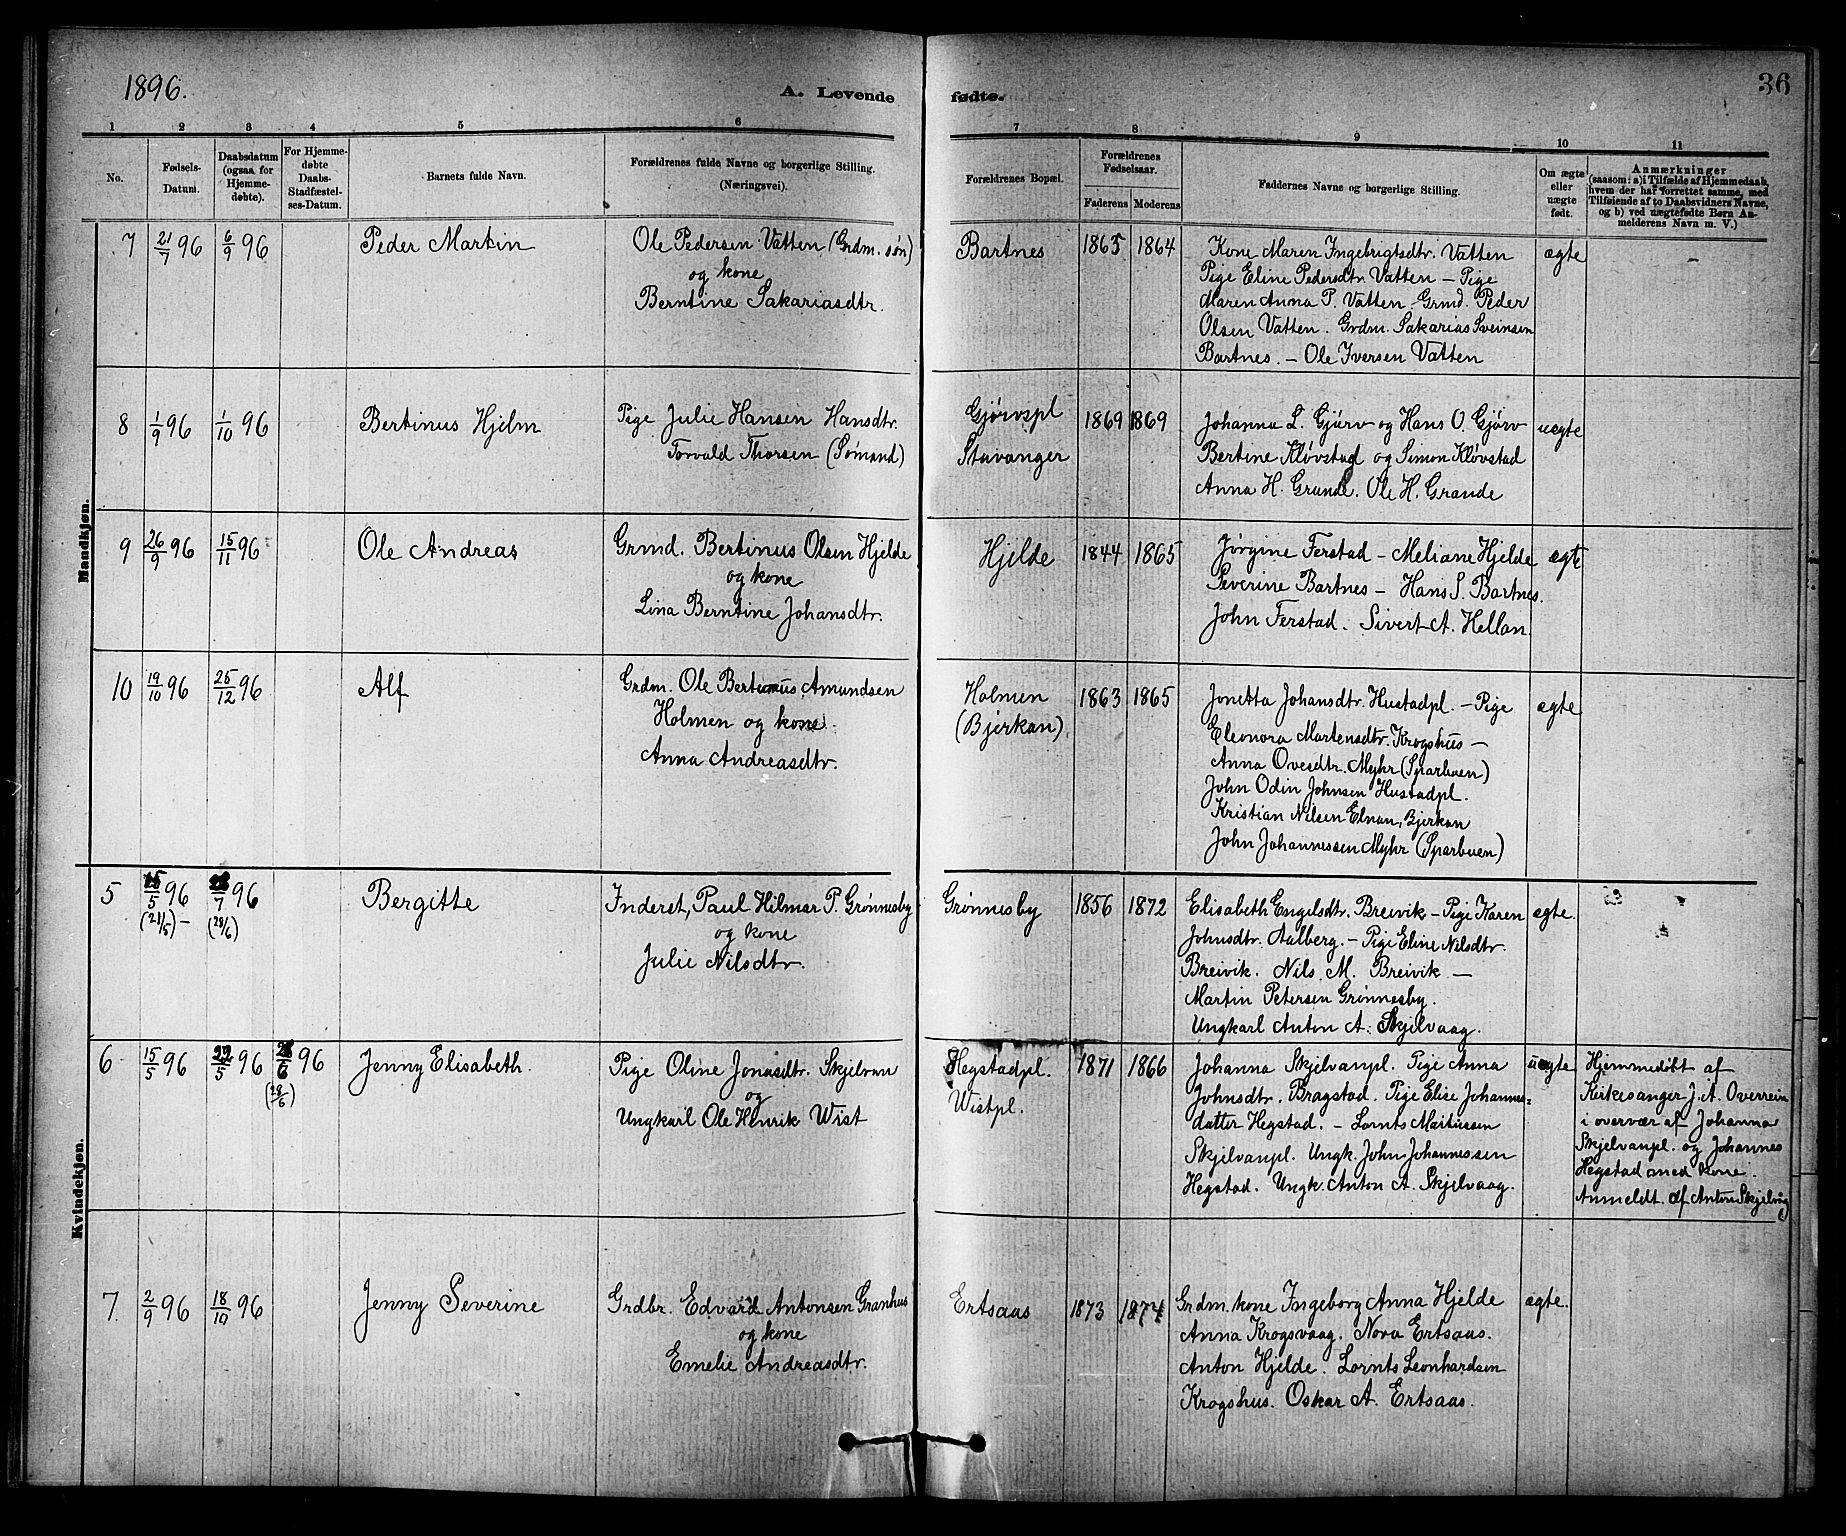 1896.
A. Levende
fødte.
36
1 2 3 4 5 6 7 8 9 10 11
No.
Fødsels-
Datum.
Daabsdatum
(ogsaa for
Hjemme-
døbte).
For Hjemme-
døbte
Daabs-
Stadfæstel-
ses-Datum.
Barnets fulde Navn.
Forældrenes fulde Navne og borgerlige Stilling.
(Næringsvei).
Forældrenes Bopæl.
Forældrenes
Fødselsaar.
Faderens Moderens
Faddernes Navne og borgerlige Stilling.
Om ægte
eller
uægte
født.
Anmærkninger
(saasom: a) i Tilfælde af Hjemmedaab,
hvem der har forrettet samme, med
Tilføiende af to Daabsvidners Navne,
og b) ved uægtefødte Børn An-
melderens Navn m. V.)
Mandkjøn.
7 21/7 96 6/9 96
Peder Martin
Ole Pedersen Vatten (Grdm. søn)
og kone
Berntine Sakariasdtr.
Bartnes 1865 1864
Kone Maren Ingebrigtsdtr. Vatten
Pige Eline Pedersdtr. Vatten - Pige
Maren Anna P. Vatten - Grmd. Peder
Olsen Vatten. Grdm. Sakarias Sveinsen
Bartnes. - Ole Iversen Vatten
ægte
8 1/9 96 1/10 96
Bertinus Hjilm
Pige Julie Hansen Hansdtr.
Torvald Thorsen (Sømand)
Gjørvspl
Stavanger
1869 1869
Johanna L. Gjørv og Hans O. Gjørv
Bertine Kløvstad og Simon Kløvstad
Anna H. Grande. Ole H. Grande
uægte
9 26/9 96 15/11 96
Ole Andreas
Grmd. Bertinus Olsen Hjelde
og kone
Lina Berntine Johansdtr.
Hjelde 1844 1865
Jørgine Ferstad - Meliane Hjelde
Severine Bartnes - Hans S. Bartnes.
John Ferstad. Sivert A. Hellan.
ægte
10 19/10 96 25/12 96
Alf
Grdm. Ole Bertinus Amundsen
Holmen og kone
Anna Andreasdtr.
Holmen
(Bjerkan)
1863 1865
Jonetta Johansdtr. Hustadpl. - Pige
Eleonora Martensdtr. Krogshus -
Anna Ovesdtr. Myhr (Sparbuen)
John Odin Johnsen Hustadpl.
Kristian Nilsen Elnan, Bjerkan
John Johannessen Myhr (Sparbuen)
ægte
Kvindekjøn.
5 15/5 96 /7 96
(21/5) - (28/6)
Bergitte
Inderst, Paul Hilmar P. Grønnesby
og kone
Julie Nilsdtr.
Grønnesby 1856 1872
Elisabeth Engelsdtr. Breivik - Pige Karen
Johnsdtr. Aalberg. - Pige Eline Nilsdtr.
Breivik. Nils M. Breivik -
Martin Petersen Grønnesby.
Ungkarl Anton A. Skjelvaag.
ægte.
6 15/5 96 22/5 96 /6 96
(28/6)
Jenny Elisabeth.
Pige Oline Jonasdtr. Skjelvan
og
Ungkarl Ole Henrik Wist
Hegstadpl.
Wistpl.
1871 1866
Johanna Skjelvanpl. Pige Anna
Johnsdtr. Bragstad. Pige Elise Johannes-
datter Hegstad. - Lornts Martinssen
Skjelvanpl. Ungk. John Johannessen
Hegstad. Ungk. Anton A. Skjelvaag.
uægte
Hjemmedøbt af
Kirkesanger J. A. Overrein
i overvær af Johanna
Skjelvanpl. og Johannes
Hegstad med kone.
Anmeldt af Anton Skjelvåg
7. 2/9 96 18/10 96
Jenny Severine
Grdbr. Edvard Antonsen Granhus
og kone
Emelie Andreasdtr.
Ertsaas 1873 1874
Grdm. kone Ingeborg Anna Hjelde
Anna Krogsvaag. Nora Ertsaas.
Anton Hjelde. Lornts Leonhardsen
Krogshus. Oskar A. Ertsaas.
ægte.